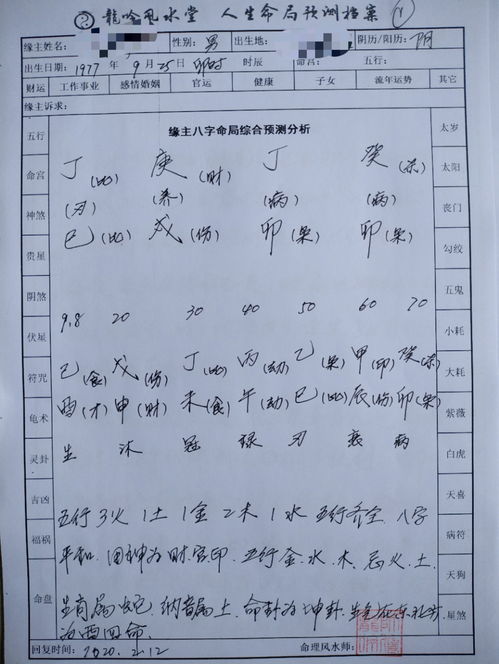 龍吟风水堂 人生命局预测档案 1
缘主姓名: 性别: 男 出生地: 阴历/阳历: 阴
出生日期: 1977 年 9月25日 卯时 时辰 命宫: 五行:
财运 工作事业 感情婚姻 官运 健康 子女 流年运势 其它
缘主诉求:
五行 缘主八字命局综合预测分析 太岁
命宫 丁(比) 庚(财) 丁 癸(杀) 太阳
神煞 (刃) (养) (病) (病) 丧门
贵星 巳(比) 戌(伤) 卯(枭) 卯(枭) 勾绞
阴煞 五鬼
伏星 9.8 20 30 40 50 60 70 小耗
符咒 己(食) 戊(伤) 丁(比) 丙(劫) 乙(枭) 甲(印) 癸(杀) 大耗
龟术 酉(才) 申(财) 未(食) 午(劫) 巳(比) 辰(伤) 卯(枭) 紫薇
灵卦 生 沐 冠 禄 刃 衰 病 白虎
吉凶 五行3火1土1金2木1水 五行齐全 八字 天喜
福祸 平和.用神为财官印.五行金.水.木.忌火.土. 病符
天狗
命盘 生肖属蛇.纳音属土.命卦为坤卦. 星煞
为西四命.
回复时间: 2020.2.12 命理风水师: